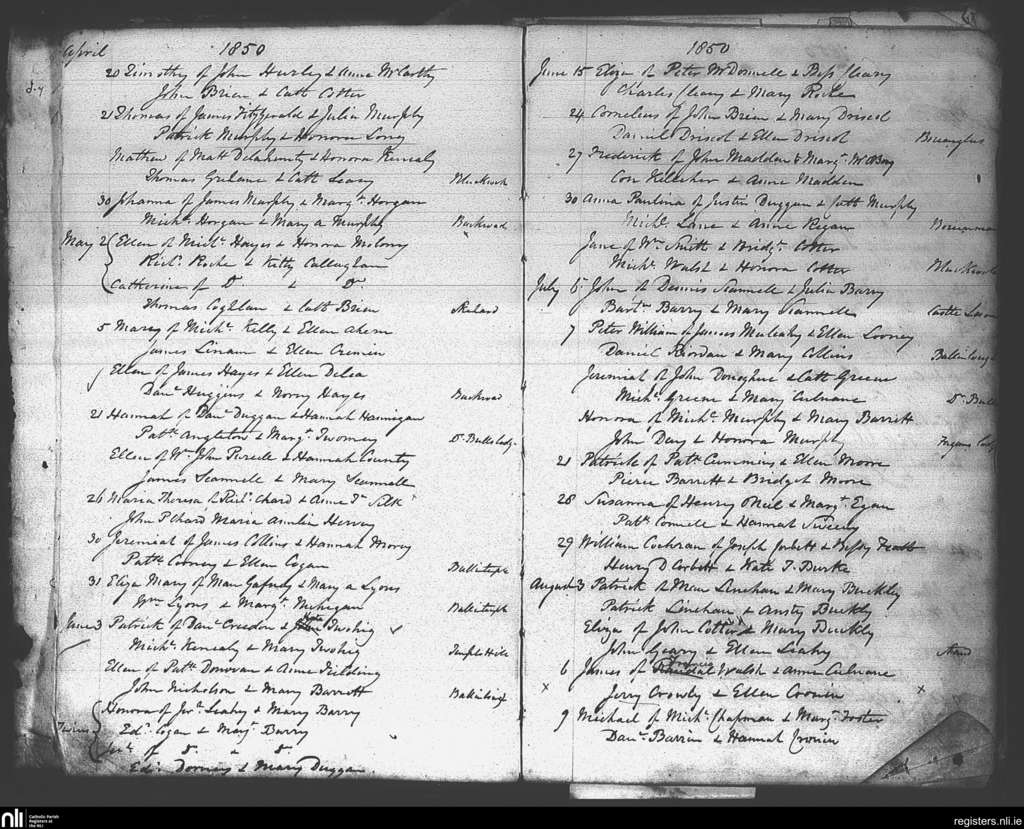 April 1850
20 Timothy of John Hurley & Anne McCarthy
John Brien & Cath Cotter
21 Thomas of James Fitzgerald & Julia Murphy
Patrick Murphy & Honora Long
Mathew of Matt Delahunty & Honora Kenealy
Thomas & Cath Leary Blackrock
30 Johanna of James Murphy & Margt. Horgan
Michl. Horgan & Mary a Murphy
May 2 Ellen of Michl. Hayes & Honora
Richd. Roche & Kitty Callaghan
Catherine of Do & Do
Thomas Coghlan & Cath Brien
5 Mary of Michl. Kelly & Ellen Ahern
James & Ellen Cremin
Ellen of James Hayes & Ellen Delea
Danl. Huggins & Norry Hayes
21 Hannah of Danl. Duggan & Hannah Hannigan
Patk. Angleton & Margt. Twomey
Ellen of Wm. John & Hannah
James Scannell & Mary Scannell
26 Maria Theresa of Richd. Chard & Anne Silk
John P Chard Maria Hervey
30 Jeremiah of James Collins & Hannah
Patk. & Ellen Cogan Ballintemple
31 Eliza Mary of & Mary a Lyons
Wm. Lyons & Margt. Mehigan Ballintemple
June 3 Patrick of Danl. Creedon & Twohig
Michl. Kenealy & Mary Twohig Temple Hill
Ellen of Patk. Donovan & Anne Fielding
John Nicholson & Mary Barrett
Twins Honora of Jno. Leahy & Mary Barry
Ed. Cogan & Margt. Barry
Jno. of Do & Do
Ed. & Mary Duggan
1850
June 15 Eliza of Peter McDonnell & Bess Cleary
Charles Cleary & Mary Roche
24 Cornelius of John Brien & Mary Driscol
Daniel Driscol & Ellen Driscol
27 Frederick of John Madden & Margt.
Con Kelleher & Anne Madden
30 Anna Paulina of Justin Duggan & Cath Murphy
Michl. Lane & Anne Regan
Jane of Wm. Smith & Bridgt. Cotter
Michl. Walsh & Honora Cotter Blackrock
July 5 John of Dennis Scannell & Julia Barry
Bartw. Barry & Mary Scannell
7 Peter William of James Mulcahy & Ellen Looney
Daniel Riordan & Mary Collins
Jeremiah of John Donoghue & Cath Greene
Michl. Greene & Mary Culnane
Honora of Michl. Murphy & Mary Barrett
John Day & Honora Murphy
21 Patrick of Patk. Cummins & Ellen Moore
Pierce Barrett & Bridget Moore
28 Susanna of Henry Neil & Margt. Egan
Patk. Connell & Hannah Sweeny
29 William Cochran of Joseph Corbett & Bessy
Henry D Corbett & Kate T. Burke
August 3 Patrick of Linehan & Mary Buckley
Patrick Linehan & Ansty Buckly
Eliza of John Cotter & Mary Buckly
John Geary & Ellen Leahy
x 6 James of Walsh & Anne Culnane x
Jerry Crowly & Ellen Cronin
9 Michael of Michl. Chapman & Margt. Foster
Danl. Barrin & Hannah Cronin
nli
Catholic Parish
Registers at
the NLI
registers.nli.ie